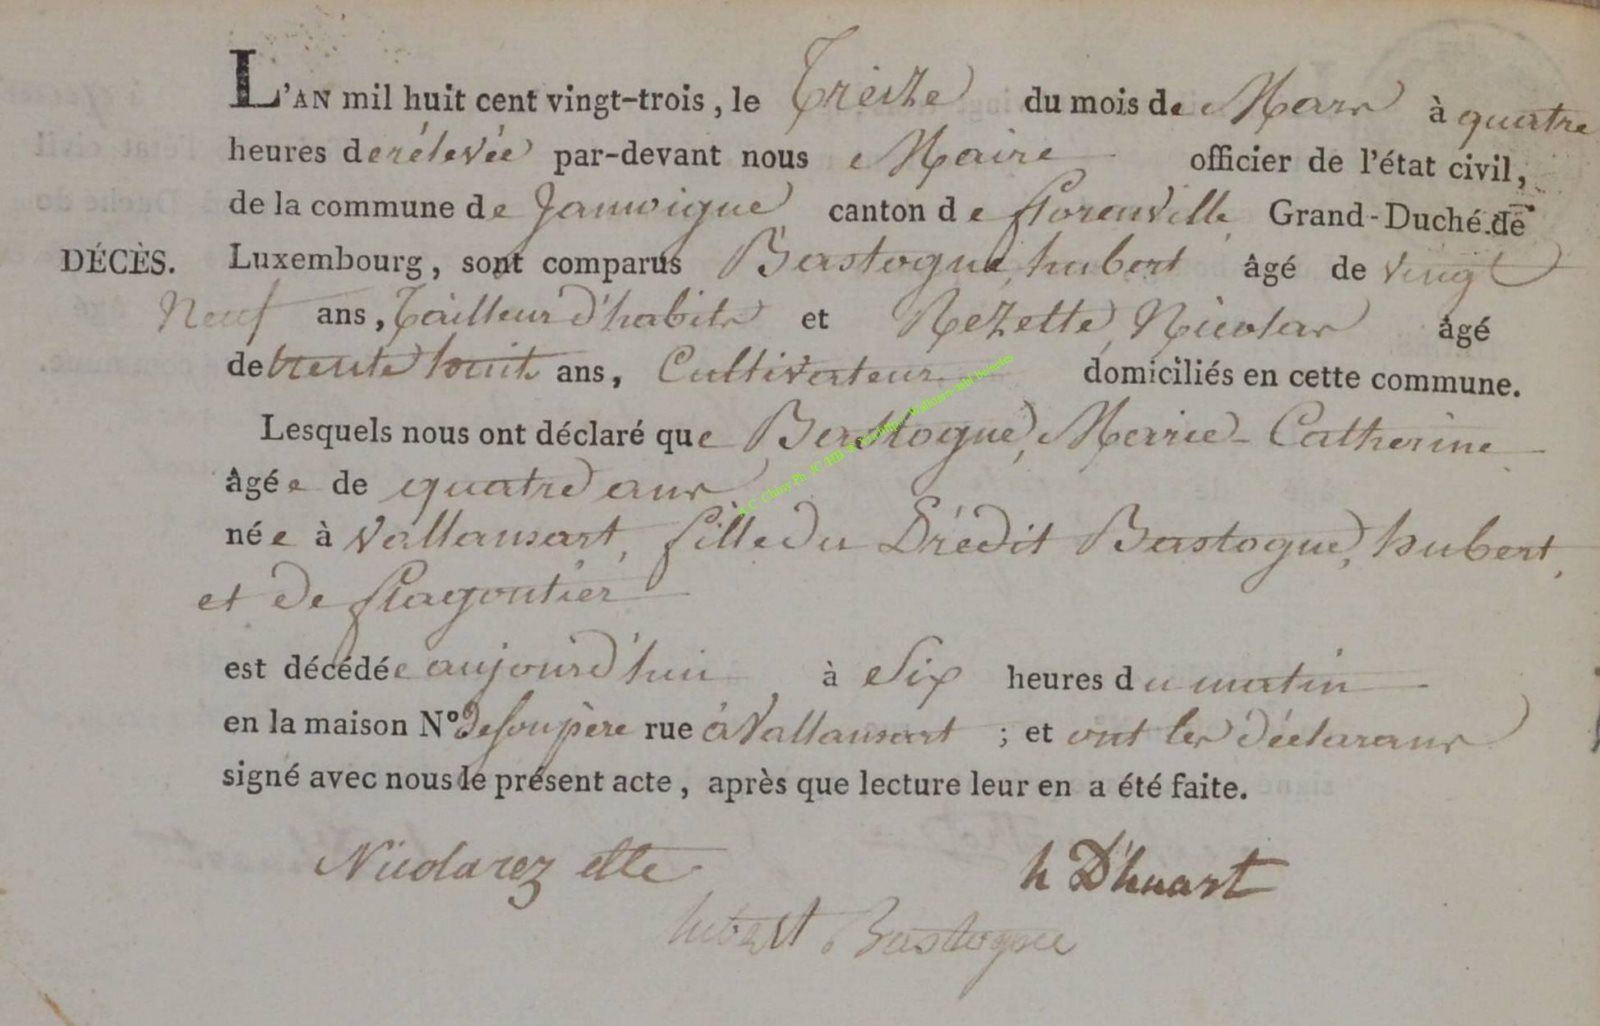 L'AN mil huit cent vingt-trois, le Treize du mois de Mars à quatre
heures de rélevée par-devant nous Maire officier de l'état civil,
de la commune de Jamoigne canton de florenville Grand-Duché de
DÉCÈS. Luxembourg, sont comparus Bastogne, hubert âgé de vingt
Neuf ans, Tailleur d'habits et Rezette, Nicolas âgé
de trente huit ans, Cultivateur domiciliés en cette commune.
Lesquels nous ont déclaré que Bastogne, Marie-Catherine
âgée de quatre ans
née à Vallansart, fille du Prédit Bastogne, hubert,
et de flagontier
est décédée aujourd'hui à Six heures du matin
en la maison N° de son père rue à Vallansart ; et ont les déclarans
signé avec nous le présent acte, après que lecture leur en a été faite.
Nicola rez ette
h D'huart
hubert Bastogne